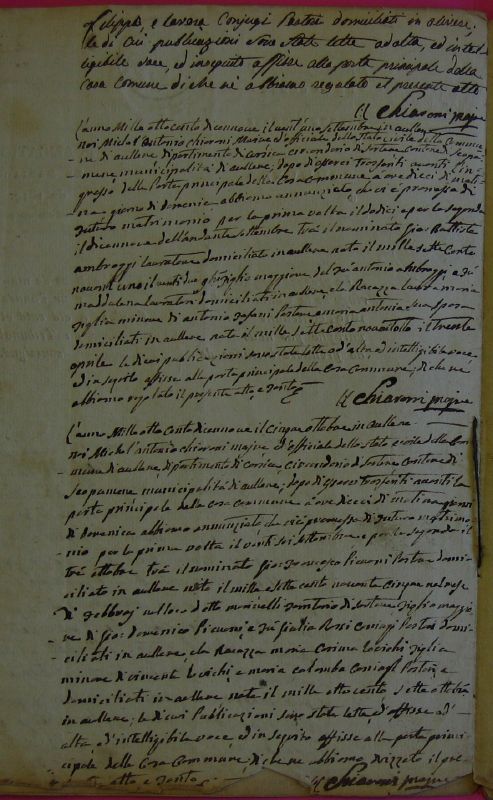 Filippo, e lavora Conjugi Pastori domiciliati in olivese,
le di cui publicazioni sono state lette ad alta, ed intel
ligibile voce, ed in seguito affisse alla porta principale della
casa Comune di che ne abbiamo regolato il presente atto
Chiaroni maire
L'anno Mille otto cento diecinnove, il vent'uno settembre in aullene
noi Michel'Antonio chiaroni Maire ed officiale dello stato civile della Commu
ne di aullene dipartimento di Corsica circondario di Sartene Contone di Scopa
mene municipalità di aullene; dopo di esserci trasferiti avanti l'in
gresso della Porta principale della Casa Commune a ore dieci di mati
na giorno di domenica abbiamo annunziato che vi è promessa di
futuro matrimonio per la prima volta il dodici e per la seconda
il diecinnove dell'andante settembre trà il nominato Gio: Battista
ambroggi lavoratore domiciliato in aullene nato il mille sette Cento
novant'uno il venti due figlio maggiore del fù antonio ambroggi, e fù
maddalena lavoratori domiciliati in aullene, e la Ragazza Laura maria
figlia minore di antonio Pastore e maria antonia sua sposa
domiciliati in aullene nata il mille sette Cento novant'otto il trenta
aprile le di cui publicazioni sono state lette ad alta ed intelligibile voce
ed in seguito affisse alla porta principale della Casa Commune; di che ne
abbiamo regolato il presente atto
Chiaroni maire
L'anno Mille otto Cento diecinnove il cinque ottobre in aullene
noi Michel'antonio chiaroni maire, ed officiale dello stato civile della Com
mune di aullene, dipartimento di Corsica circondario di Sartene Contone di
Scopamene municipalità di aullene; dopo di esserci trasferiti avanti la
porta principale della casa commune a ore dieci di matina giorno
di domenica abbiamo annunziato che vi è promessa di futuro matrimo
nio per la prima volta il venti sei settembre e per la seconda il
trè ottobre trà il nominato Gio: Francesco Pieroni Pastore domi
ciliato in aullene nato il mille sette cento novanta cinque nel mese
di Febbraj nel loco detto territorio di Sartene figlio maggio
re di Gio: Domenico Pieroni, e fù Giulia Rosi Coniugi Pastori domi
ciliati in aullene, e la Ragazza maria Corima figlia
minore di vincente e maria colomba Coniugi Pastori, e
domiciliati in aullene nata il mille otto cento, sette ottobre
in aullene; le di cui Publicazioni sono state lette ed affisse ad
alta, ed intelligibile voce ed in seguito affisse alla porta princi
cipale della Casa Commune; di che ne abbiamo drizzato il pre
atto
Chiaroni maire